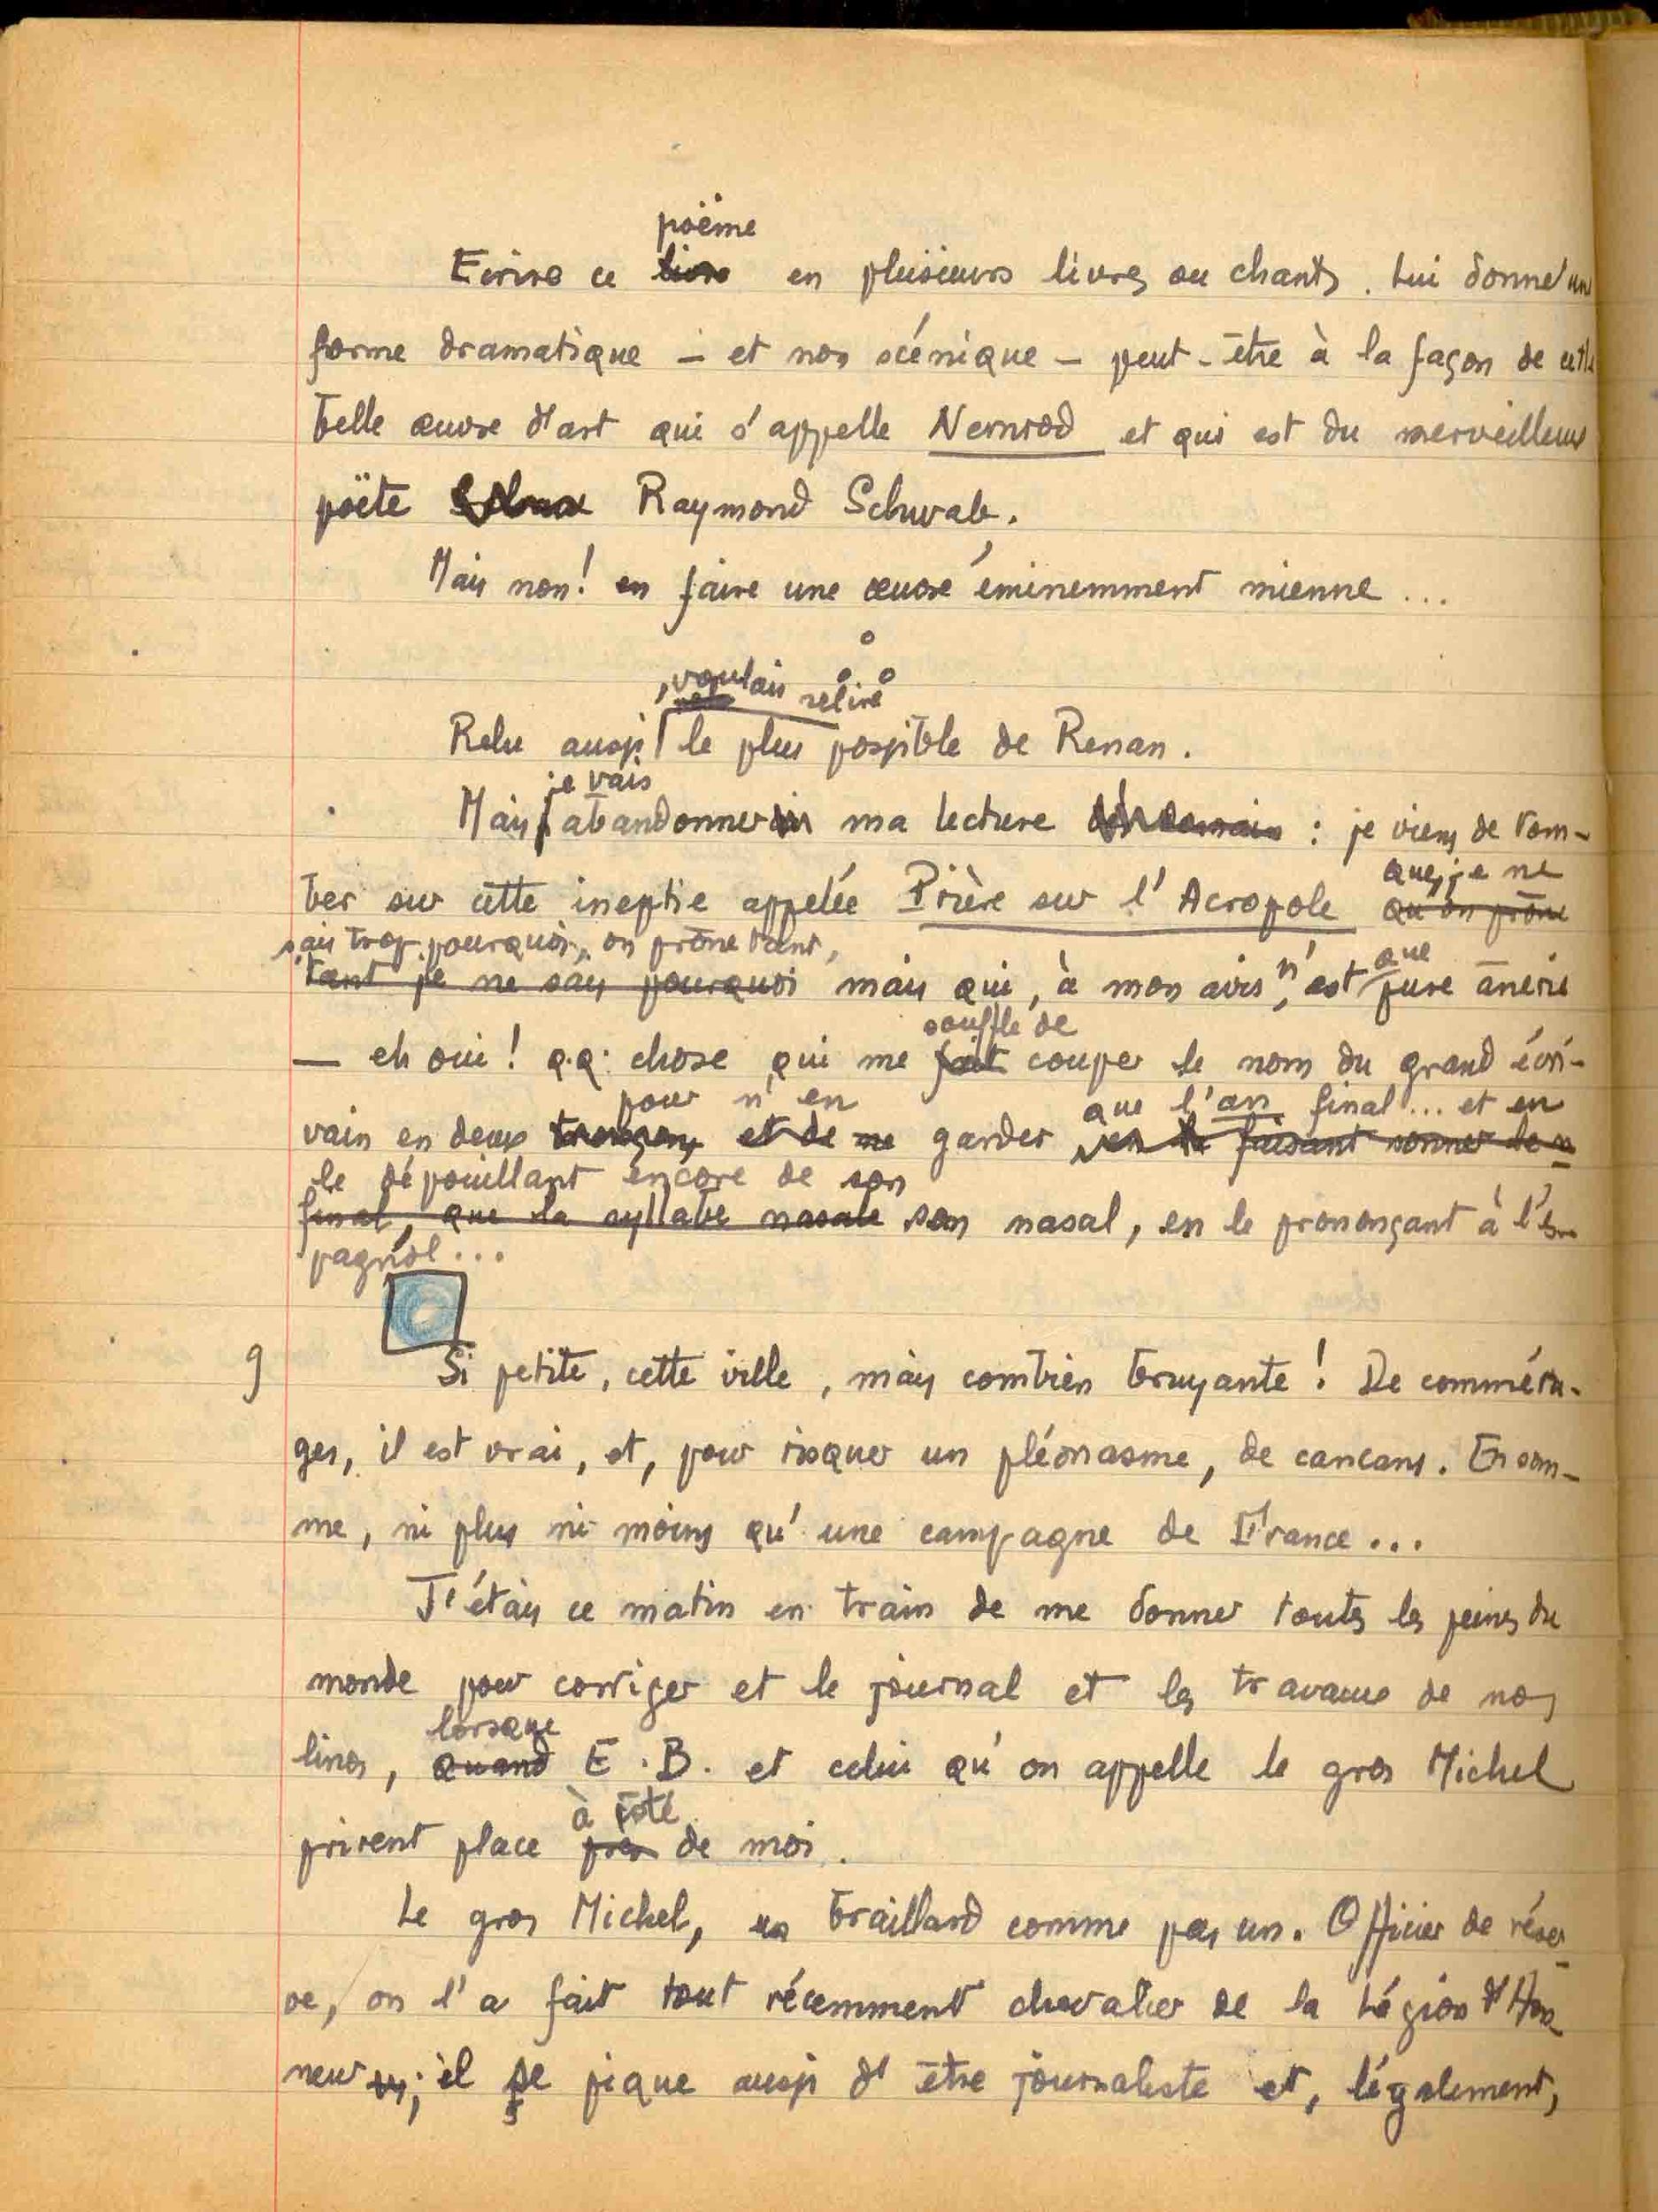 poëme
Ecrire ce livre en plusieurs livres ou chants. Lui donner un
forme dramatique – et non scénique – peut-être à la façon de cette
belle œuvre d'art qui s'appelle Nemrod et qui est du merveilleux
poëte Raymond Schwab.
Mais non! en faire une œuvre éminemment mienne ...
, voulais relire
Relu aussi le plus possible de Renan.
je vais
Mais abandonner ma lecture : je viens de tom-
que, je ne
ber sur cette ineptie appelée Prière sur l'Acropole qu'on prône
sais trop pourquoi, on prône tant,
tant je ne sais pourquoi mais qui, à mon avis, n'est que pure ânerie
souffle de
— eh oui! q.q. chose qui me fait couper le nom du grand écri-
pour n'en que l'an final... et en
vain en deux tronçons et de ne garder faisant sonner le n
le dépouillant encore de son
final, que la syllabe nasale son nasal, en le prononçant à l'es-
pagnol...
9 Si petite, cette ville, mais combien bruyante! De comméra-
ges, il est vrai, et, pour risquer un pléonasme, de cancans. En som-
me, ni plus ni moins qu'une campagne de France...
J'étais ce matin en train de me donner toutes les peines du
monde pour corriger et le journal et les travaux de nos
lorsque
linos, quand E.B. et celui qu'on appelle le gros Michel
à côté
prirent place près de moi.
Le gros Michel, un braillard comme pas un. Officier de réser-
ve, on l'a fait tout récemment chevalier de la Légion d'Hon-
neur; il se pique aussi d'être journaliste et, légalement,